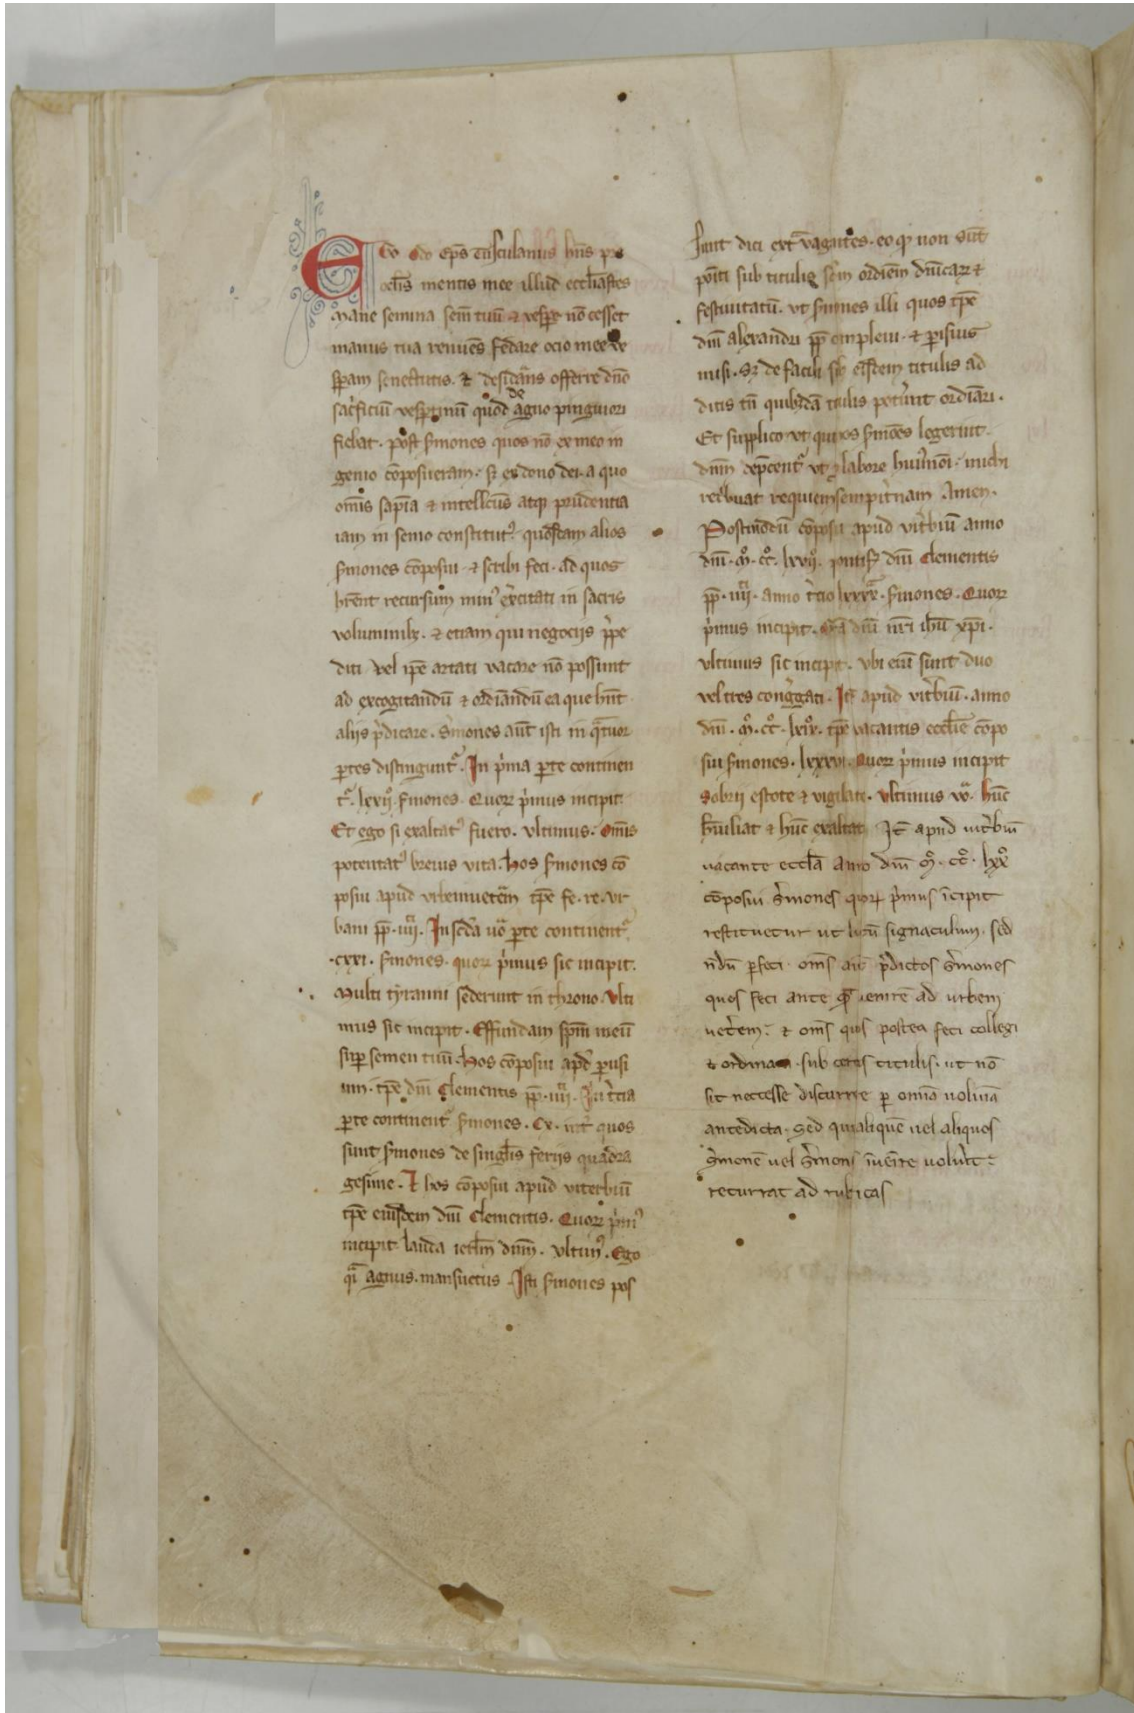 Ego Odo ep̄s tusculanus hn̄s pre
oclis mentis mee illud eccl̄iastes
Mane semina sem̄ tuū ⁊ vespe nō cesset
manus tua renuēs fedare ocio mee ve
sp̄am senectutis. Et desiderās offerre dn̄o
sac̍ficiū vesp̱tinū quod de agno pinguiori
fiebat. post s̄mones quos nō ex meo in
genio cōposueram. s; ex dono dei. a quo
om̄is sapīa ⁊ intellc̄us atq; prudentia
iam in senio constitut᾿. quosdam alios
s̄mones cōposui ⁊ scribi feci. ad quos
hr̄ent recursum min᾿ ex̄citati in sacris
voluminib;. ⁊ etiam qui negociis p̄pe
diti vel tp̄e artati vacare nō possunt
ad excogitandū ⁊ ordinandū ea que hn̄t
aliis p̄dicare. S̄mones aūt isti in q̄tuor
partes distingunt᾿. In p̍ma parte continen
t᾿. lxxij. s̄mones. Quoꝝ p̍mus incipit.
Et ego si exaltat᾿ fuero. Vltimus. Om̄is
potentat᾿ brevis vita. Hos s̄mones cō
posui apud urbemueterē tp̄e fe. re. vr
bani pp̄. iiij. In sc̄da uō parte continent᾿
.cxxi. s̄mones. quoꝝ p̍mus sic incipit.
Multi tyranni sederunt in throno. Vlti
mus sic incipit. Effundam sp̄m meū
sup semen tuū. Hos cōposui apd̄ perusi
um. tp̄e dn̄i Clementis pp̄. iiij. In t̍cia
parte continent᾿ s̄mones. Cx. int̄ quos
sunt s̄mones de singl̄is feriis quadra
gesime. Et hos cōposui apud viterbiū
tp̄e eiusdem dn̄i Clementis. Quoꝝ p̍m᾿
incipit lauda ierl̄m dn̄m. Vltim᾿. Ego
q̄i agnus mansuetus. Isti s̄mones pos
sunt dici ext̄vagantes. eo q̄ non sūt
positi sub titulis sc̄dm ordinem dn̄icaꝝ ⁊
festiuitatū. vt s̄mones illi quos tp̄e
dn̄i alexandri pp̄ compleui. ⁊ parisius
misi. S; de facili sub eisdem titulis ad
ditis tn̄ quibusdā titulis pot̄unt ordināri.
Et supplico vt qui hos s̄mones legerint
dn̄m dep̄centur ut p labore huiusmōi. michi
retribuat requiem sempit̄nam Amen.
Postmodū cōposui apud vit̄biū anno
dn̄i. M̊. cc̊. lxvij. pontif̄ dn̄i Clementis
pp̄. iiij. anno t̍cio lxxxx. s̄mones. Quoꝝ
p̍mus incipit. Gr̄a dn̄i nr̄i ih̄u xp̄i.
Vltimus sic incipit. Vbi eni sunt duo
vel tres cong̍gati. It̄ apud vit̄biū. anno
dn̄i. M̊. cc̊. lxix̊. tp̄e vacantis eccl̄ie cōpo
sui s̄mones. lxxxvi. Quoꝝ p̍mus incipit
Sobrii estote ⁊ vigilate. Vltimus uō. Hūc
humiliat ⁊ hūc exaltat. It̄ apud uit̄biū
uacante eccl̄a anno dn̄i M̊. cc̊. lxx̊
cōposui s̄mones quoꝝ p̍mus īcipit
restituetur ut lutū signaculum. sed
nōdū perfeci. om̄s aūt p̄dictos s̄mones
quos feci ante q̄ uenirē ad urbem
uet̄em. ⁊ om̄s quos postea feci collegi
⁊ ordinaui sub certis titulis. ut nō
sit necesse discurrere per omīa uolumīa
antedicta. Sed qui aliquē uel aliquos
s̄monē uel s̄mones īuēire uolu̍it.
recurrat ad rubricas